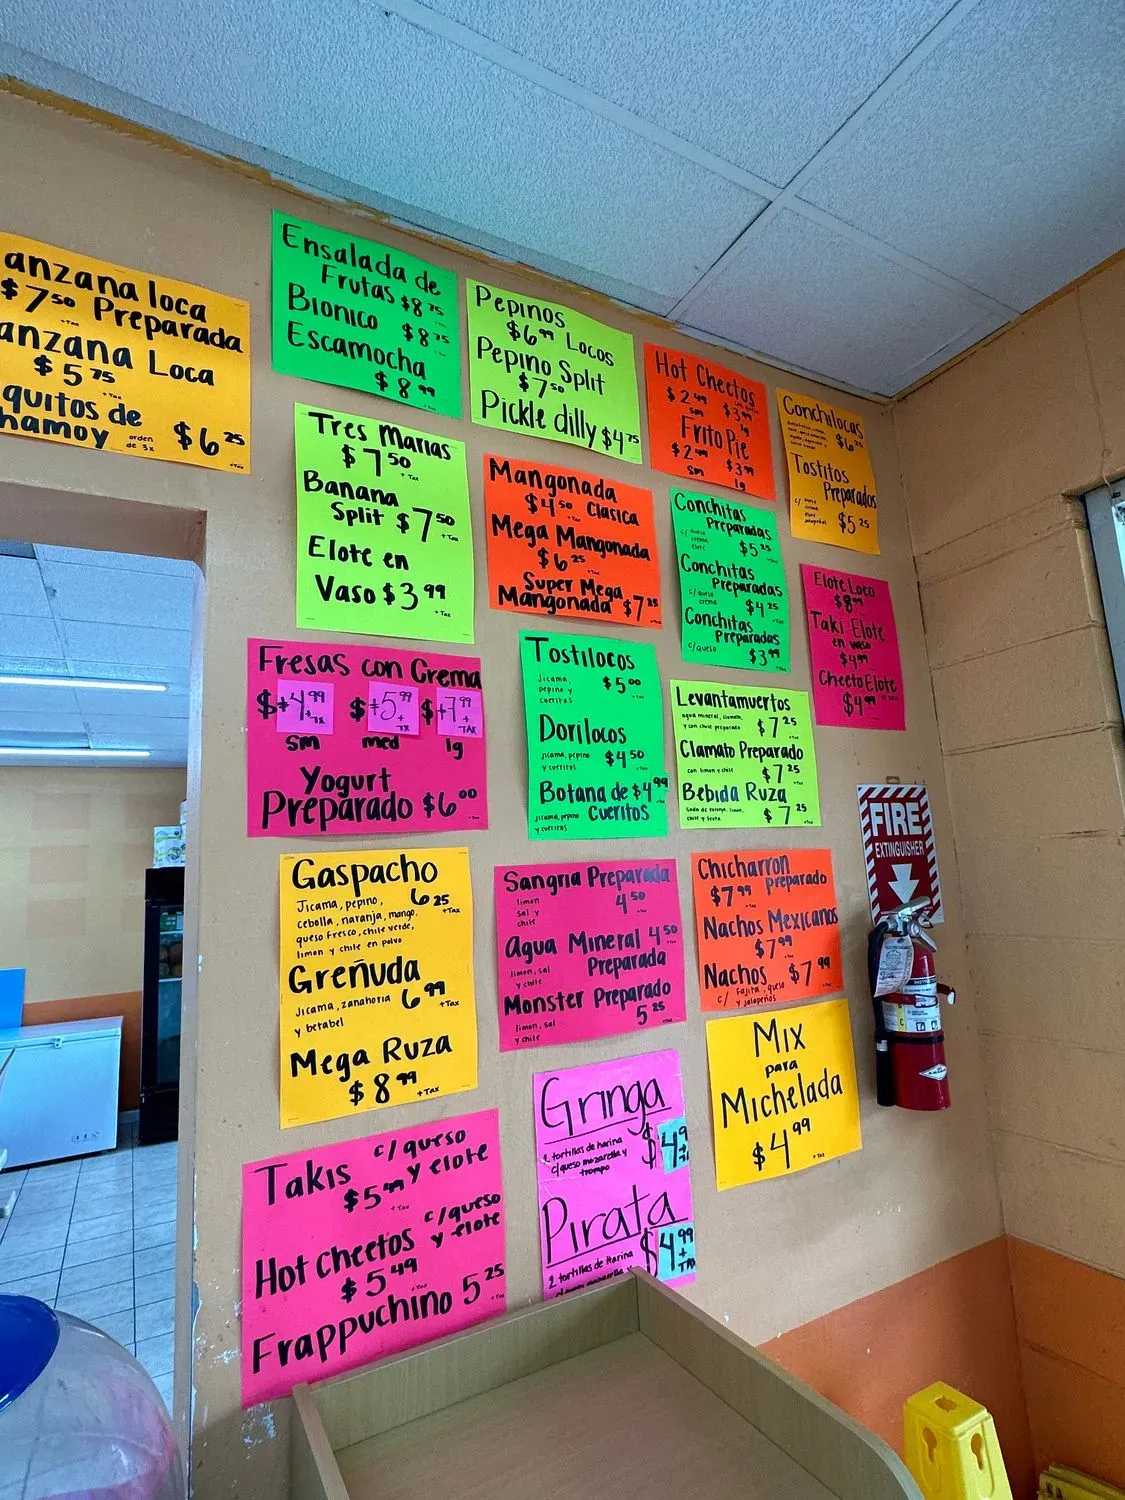 anzana loca
$7.50 Preparada
+Tax
anzana Loca
$5.75
+Tax
quitos de
hamoy orden de 3x $6.25
+Tax
Ensalada de
Frutas $8.75
Bionico $8.75
Escamocha
$8.99
+Tax
Pepinos
$6.99 Locos
Pepino Split
$7.50
Pickle dilly $4.75
Hot Cheetos
$2.49 $3.99
sm lg
Frito Pie
$2.49 $3.99
sm lg
Conchilocas
$6.25
Tostitos
Preparados
c/ queso
crema
elote
jalapeños
$5.25
Tres Marias
$7.50
+Tax
Banana
Split $7.50
+Tax
Elote en
Vaso $3.99
+Tax
Mangonada
$4.50 Clasica
+Tax
Mega Mangonada
$6.25
+Tax
Super Mega
Mangonada $7.25
+Tax
Conchitas
Preparadas
c/ queso
crema
elote
$5.25
Conchitas
Preparadas
c/ queso
crema
$4.25
Conchitas
Preparadas
c/queso
$3.99
Elote Loco
$8.99
Taki Elote
en vaso
$4.99
Cheeto Elote
$4.99
Fresas con Crema
$4.99 $5.99 $7.99
+TX +TX +TAX
sm med lg
Yogurt
Preparado $6.00
+Tax
Tostilocos
Jicama,
pepino y
cueritos
$5.00
Dorilocos
Jicama, pepino
y cueritos
$4.50
Botana de $4.99
Cueritos
Jicama, pepino
y cueritos
Levantamuertos
agua mineral, clamato,
y con chile preparado
$7.25
Clamato Preparado
con limon y chile
$7.25
Bebida Ruza
Soda de toronja, limon,
chile y fruta
$7.25
+Tax
FIRE
EXTINGUISHER
Gaspacho
Jicama, pepino, 6.25
+Tax
cebolla, naranja, mango,
queso fresco, chile verde,
limon y chile en polvo
Greñuda
Jicama, zanahoria 6.99
+Tax
y betabel
Mega Ruza
$8.99
+Tax
Sangria Preparada
limon
sal y
chile
4.50
Agua Mineral 4.50
limon, sal
y chile
Preparada
Monster Preparado
limon, sal
y chile
5.25
Chicharron
$7.99 Preparado
Nachos Mexicanos
$7.99
Nachos $7.99
c/ fajita, queso
y jalapeños
Mix
para
Michelada
$4.99
+Tax
Takis c/queso
y elote
$5.49
+Tax
Hot Cheetos c/queso
y elote
$5.49
+Tax
Frappuchino 5.25
Gringa
2 tortillas de harina
c/queso mozarella y
trompo
$4.9
Pirata
2 tortillas de harina
$4.99
+
TAX